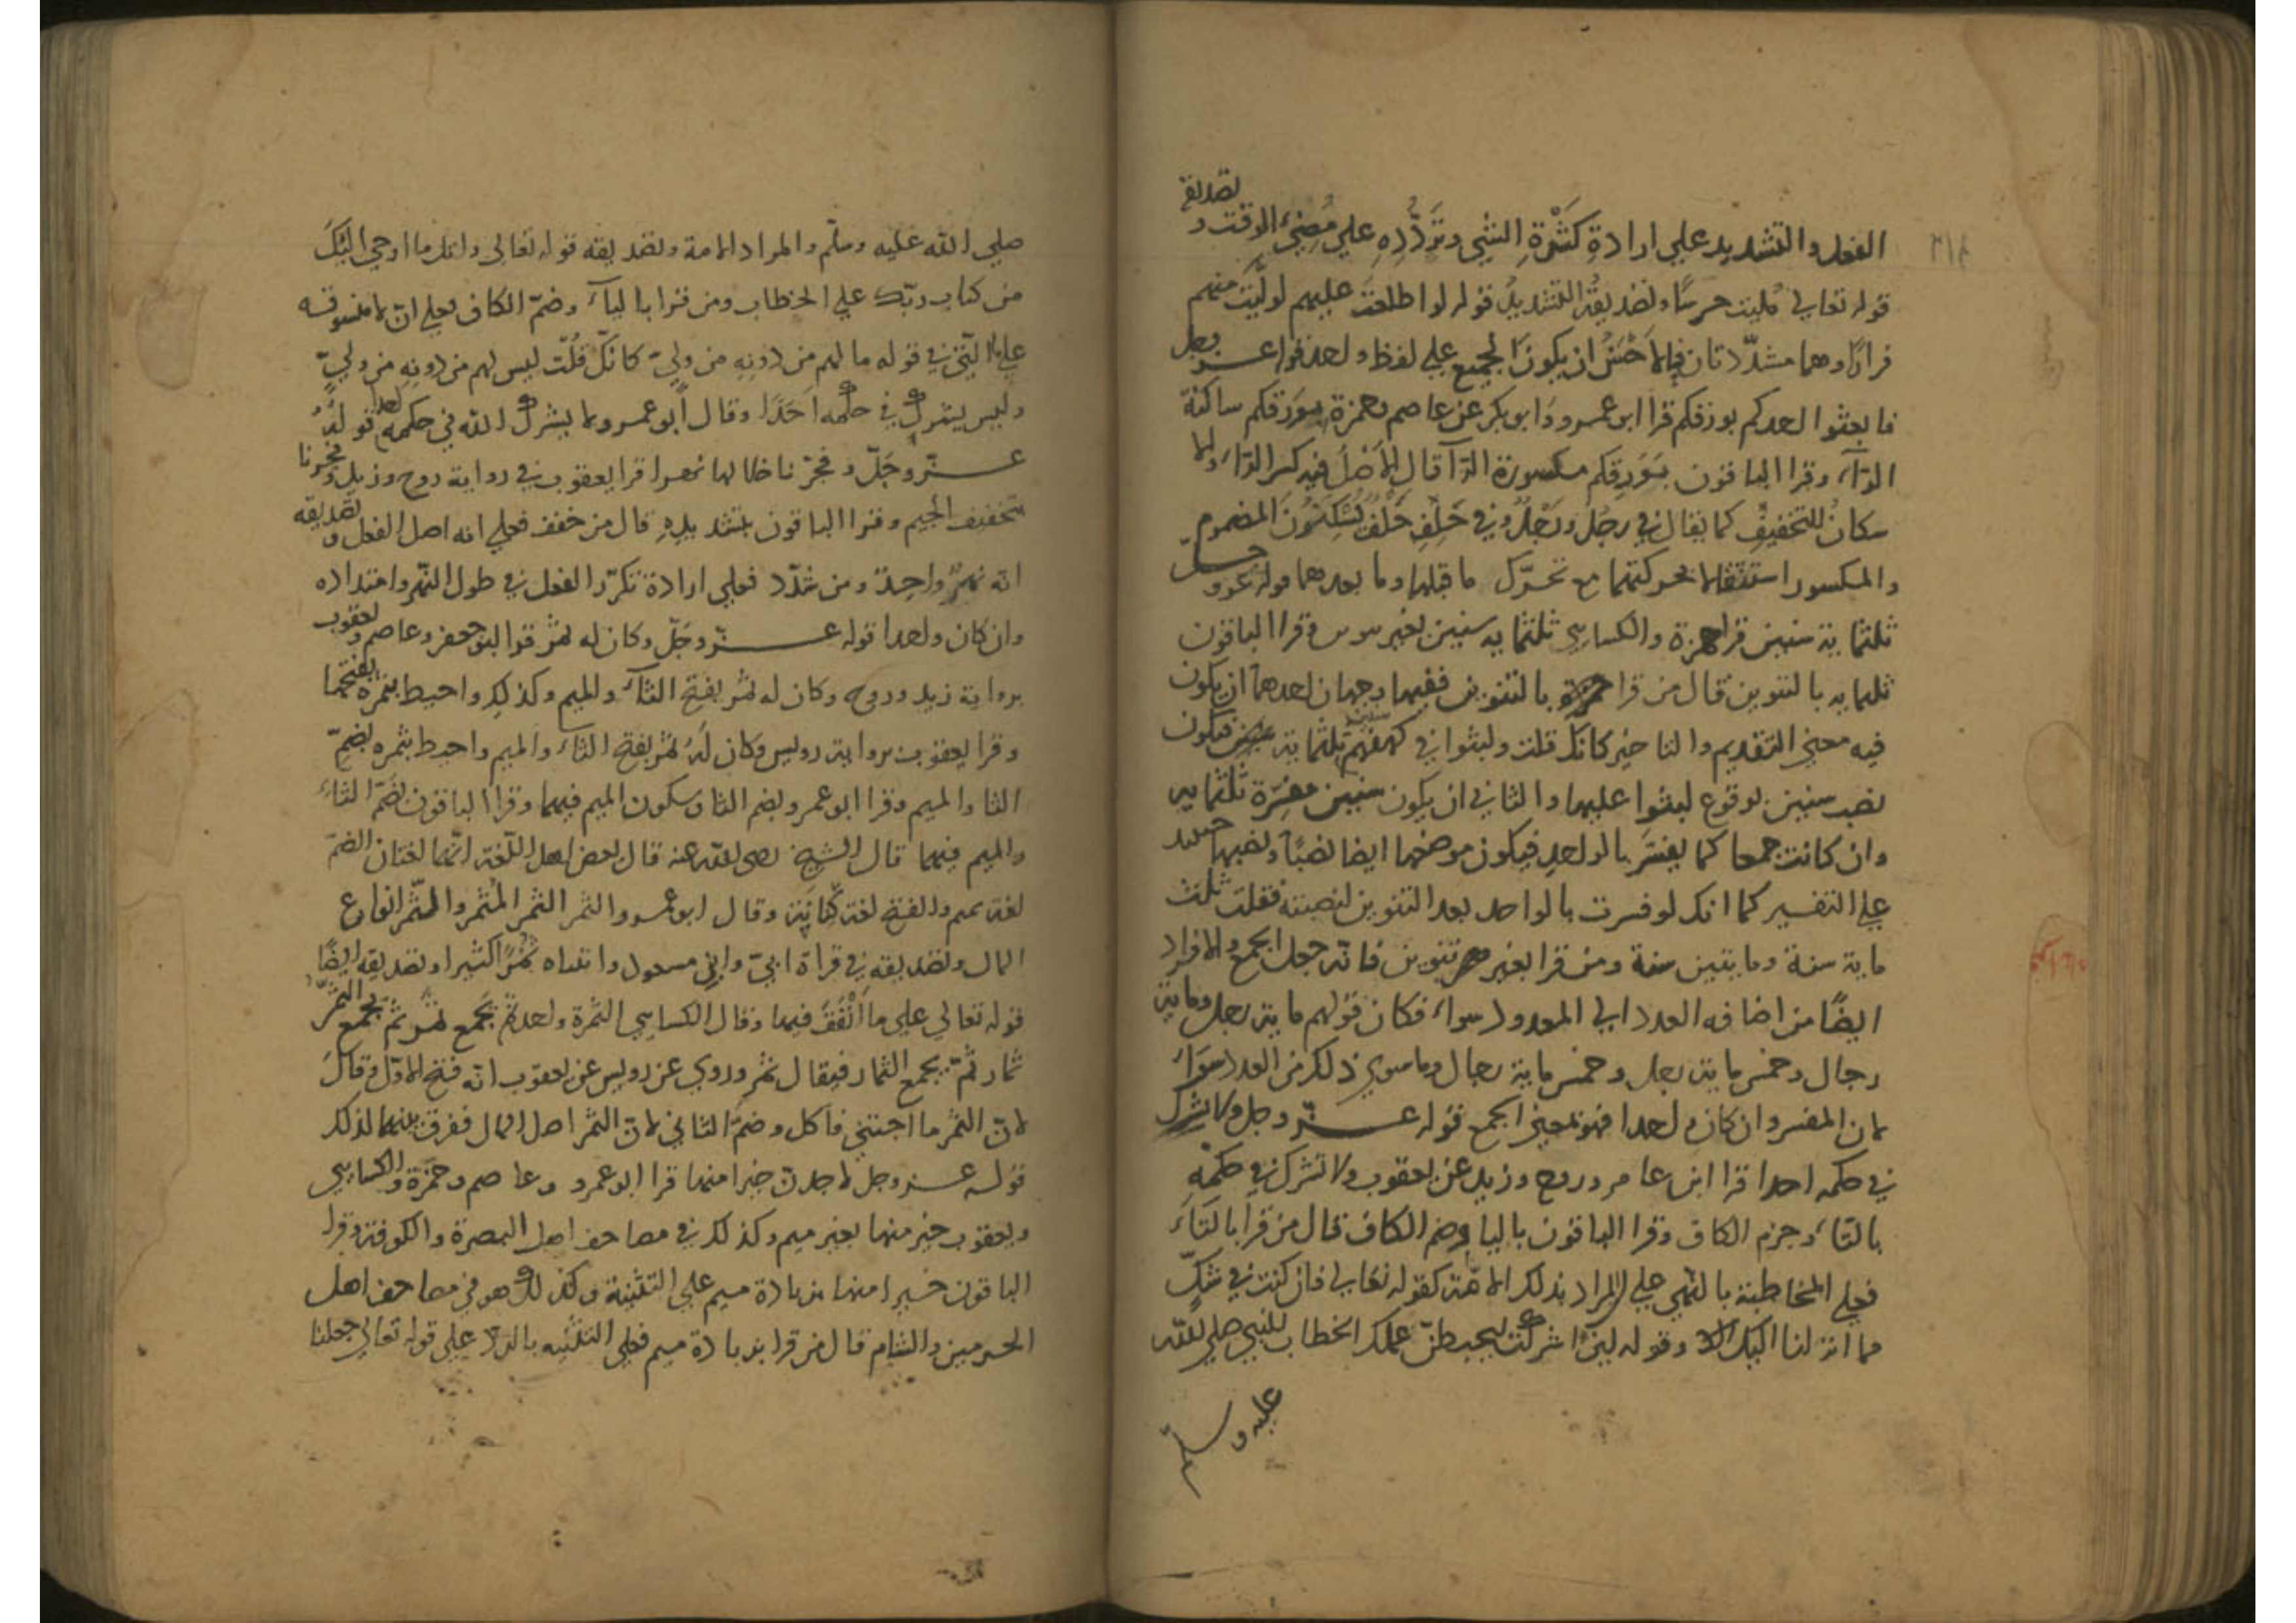 الفعل والتشديد علي ارادة كَثْرَةِ الشي وتَرَدُّدِهِ علي مُضِيّ الوقت و تصديقه
قوله تعالي مُليت حرسًا وتصديقُ التشديدُ قوله لو اطلعت عليهم لولّيت منهم
فرارًا وهما مشدّدتان فالاحْسَنُ ان يكونَ الجميع علي لفظ واحد قوله عز وجل
فابعثوا احدكم بورقكم قرا ابو عمرو وَابو بكر عن عاصم وحمزة بوَرْقكم ساكنة
الرّآء وقرا الباقون بوَرِقكم مكسورة الرّآ قال الاَصْلُ فيه كسر الرّآء وانما
سكانُ للتخفيفِ كما يقال في رجُل ورَجْلٌ وفي حَلِفِ حَلْفٌ يُسْكِنُونَ المضموم
والمكسور استثقالا لحركتهما مع تحرّك ما قبلها وما بعدهما قوله عز وجلّ
ثلثماية سنين قرا حمزة والكسايي ثلثمايه سنين بغير تنوين وقرا الباقون
ثلمايه بالتنوين قال من قرا بالتنوين ففيها وجهان احدهما ان يكون
فيه معني التقديم والتاخير كانك قلت ولبثوا في كهفهم سنين ثلثماية فيكون
نصب سنين لوقوع لبثوا عليها والثاني ان يكون سنين مفسِّرة ثلثمايه
وان كانت جمعا كما يفسَّر بالواحد فيكون موضعها ايضا نصبًا ونصبها حينيد
علي التفسير كما انك لو فسرت بالواحد بعد التنوين لنصبته فقلت ثلث
ماية سنة ومايتين سنة ومن قرا بغير تنوين فانه جعل الجمع والافراد
ايضًا من اضافه العدد الي المعدود سواء فكان قولهم ماية رجل وماية
رجال وخمس ماية رجل وخمس ماية رجال وما سوي ذلك من العدد سَوَاء
لان المفسر وان كان واحدا فهو بمعني الجمع قوله عز وجل ولا يشرك
في حكمه احدا قرا ابن عامر وروح وزيد عن يعقوب ولا تشرك في حكمه
بالتاء وجزم الكاف وقرا الباقون باليا وضم الكاف قال من قرا بالتَاء
فعلي المخاطبة بالنهي علي المراد بذلك الامّة كقوله تعالي فان كنت في شكٍّ
مما انزلنا اليك وقوله لين اشركت ليحبطنّ عملك الخطاب للنبي صلي الله
عليه وسلم
صلي الله عليه وسلّم والمراد الامة وتصديقه قوله تعالي واتل ما اوحي اليْكَ
من كتاب ربّك علي الخطاب ومن قرا باليآء وضمّ الكاف فعلي انّ لا منسوقه
علي التي في قوله ما لهم من دونِهِ من وليّ كانّك قُلْتَ ليس لهم من دونِهِ من وليٍّ
وليس يشرك في حكمه اَحَدًا وقال ابو عمرو ولا يشرك الله في حكمه احدا قولُهُ
عزّ وجَلّ وفجّرنا خلالهما نهرا قرا يعقوب في رواية روح وزيد وفجرنا
بتخفيف الجيم وقرا الباقون بتشديدِهِ قال من خفف فعلي انه اصل الفعل و تصديقه
انّه نهرٌ واحِدٌ ومن شدّد فعلي ارادة تكرّر الفعل في طول النّهر وامتداده
وان كان واحدا قوله عزّ وجَلّ وكان له ثمر قرا ابو جعفر وعاصم ويعقوب
برواية زيد وروح وكان له ثمر بفتح الثآء والميم وكذلك واحيط بثمره بفتحهما
وقرا يعقوب برواية رويس وكان لَهُ ثمر بفتح الثاء والميم واحيط بثمره بضمّ
الثا والميم وقرا ابو عمرو بضم الثا وسكون الميم فيهما وقرا الباقون بضمّ الثاء
والميم فيهما قال الشيخ رضي الله عنه قال بعض اهل اللّغة انّهما لغتان الضمّ
لغة تميم والفتح لغة كنانة وقال ابو عمرو والثمر الثمر المُثمر والثُّمر انواع
المال وتصديقه في قراة ابيّ وابن مسعود واتيناه ثمرًا كثيرا وتصديقه ايضًا
قوله تعالي علي ما اَنْفَقَ فيها وقال الكسايي الثمرة واحدة تجمع ثمر ثم يجمع الثمر
ثمار ثمّ يجمع الثمار فيقال ثمر وروي عن رويس عن يعقوب انّه فتح الاوّل وقال
لانّ الثمر ما اجتني فاكل وضمّ الثاني لانّ الثمر اصل المال ففرق بينهما لذلك
قوله عز وجل لاجدن خيرا منها قرا ابو عمرو وعاصم وحمزة والكسايي
ويعقوب خير منها بغير ميم وكذلك في مصاحف اهل البصرة والكوفة وقرا
الباقون خيرا منهما بزيادة ميم علي التثنية وكذلك هو في مصاحف اهل
الحرمين والشام قال من قرا بزيادة ميم فعلي التثنيه بالردّ علي قوله تعالي جعلنا